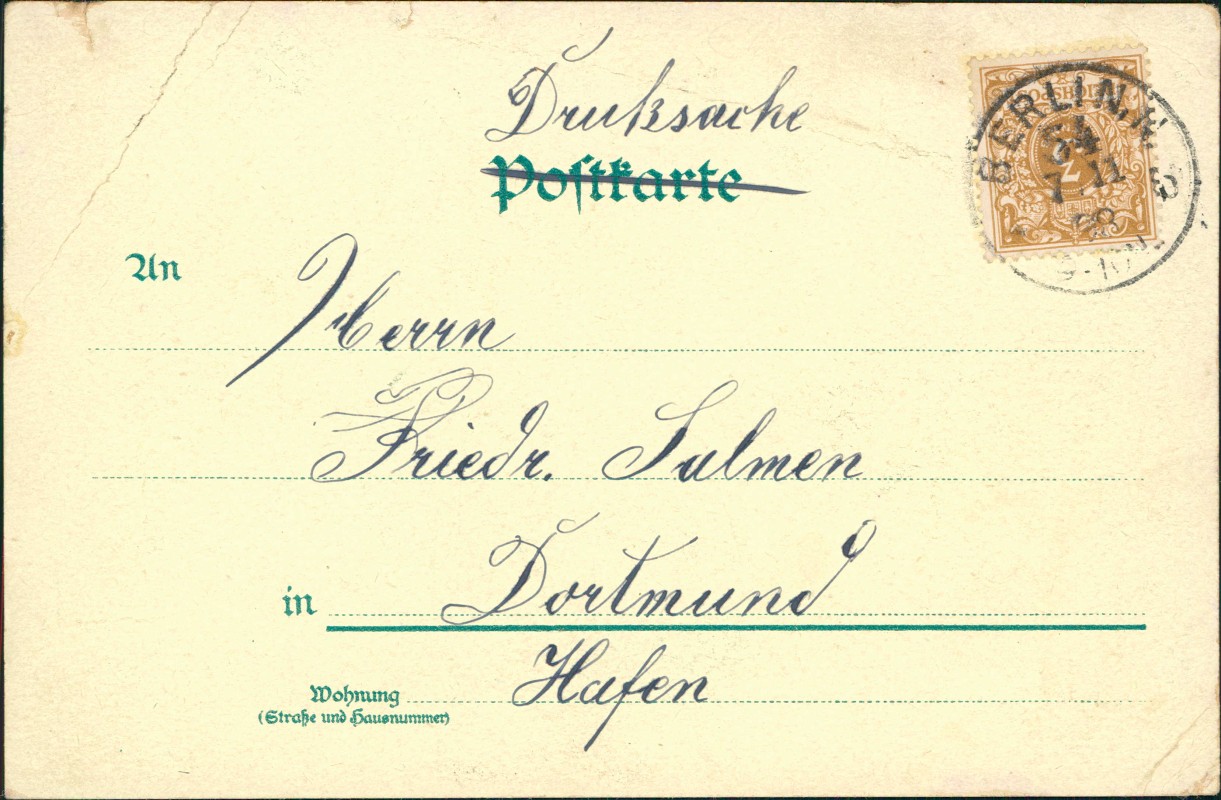 Druksache
Postkarte
BERLIN. N.
54
7.11
98
2
An
Herrn
Friedr. Salmen
in Dortmund
Hafen
Wohnung
(Straße und Hausnummer)